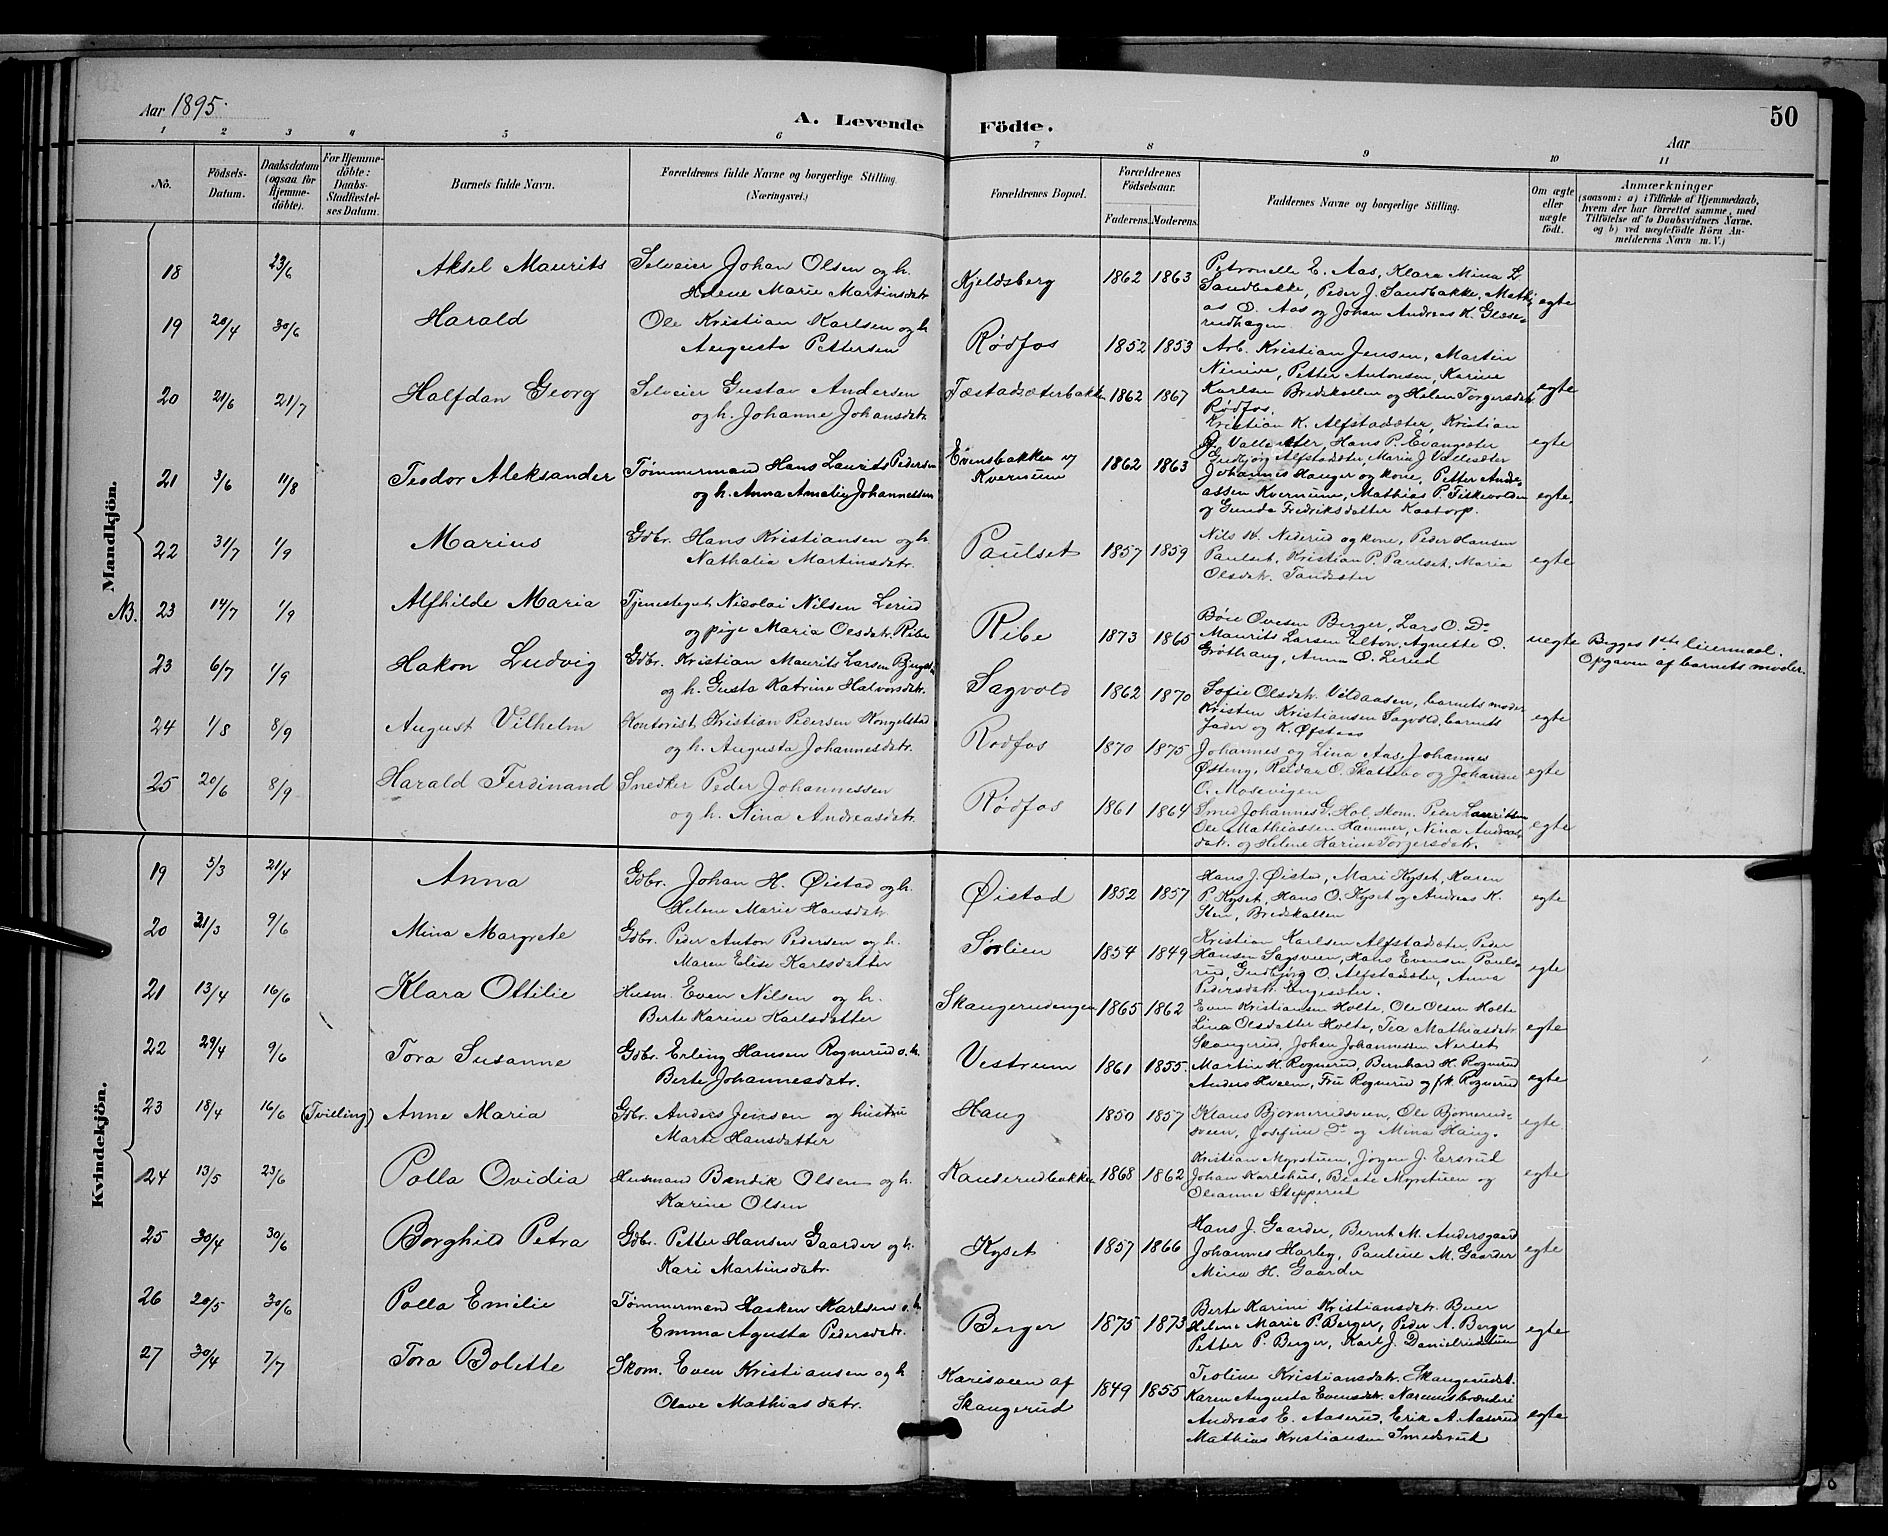 Aar 1895.
A. Levende Födte.
50
Aar
1 2 3 4 5 6 7 8 9 10 11
No.
Födsels-Datum.
Daabsdatum (ogsaa for Hjemme-döbte).
For Hjemme-döbte: Daabs-Stadfæstel-ses Datum.
Barnets fulde Navn.
Forældrenes fulde Navne og borgerlige Stilling. (Næringsvei.)
Forældrenes Bopæl.
Forældrenes Födselsaar.
Faderens. Moderens.
Faddernes Navne og borgerlige Stilling.
Om ægte eller uægte födt.
Anmærkninger
(saasom: a) i Tilfælde af Hjemmedaab, hvem der har forrettet samme, med Tilföielse af to Daabsvidners Navne. og b) ved uægtefödte Börn An-melderens Navn m. V.)
Mandkjön.
18 23/6 Aksel Maurits Selveier Johan Olsen og h. Helene Marie Martinsdatr. Kjeldsberg 1862 1863 Petronelle E. Aas, Klara Mina L Sandbakke, Peder J. Sandbakke, Mathias O. Aas og Johan Andreas K. Gløserudhagen egte
19 20/4 30/6 Harald Ole Kristian Karlsen og h Augusta Pettersen Rødfos 1852 1853 Arb. Kristian Jensen, Martin Ninive, Petter Antonsen, Karine Karlsen Bredskallen og Helen Torgersdatr. Rødfos. egte
20 21/6 21/7 Halfdan Georg Selveier Gustav Andersen og h. Johanne Johansdatr. Tæstadsæterbakken 1862 1867 Kristian K. Alfstadsæter, Kristian J. Vallesæter, Hans P. Evangsæter Gudbjør Alfstadsæter, Maria J Vallesæter egte
21 3/6 11/8 Teodor Aleksander Tømmermand Hans Laurits Pedersen og h. Anna Amalie Johannessen Evensbakken u/ Kvernum 1862 1863 Johannes Hauger og kone, Petter Andreassen Kvernum, Mathias P. Fiskevolden og Gunda Fredriksdatter Kastorp. egte.
22 31/7 1/9 Marius Gdbr. Hans Kristiansen og h Nathalia Martinsdatr. Paulset 1857 1859 Nils H. Nederud og kone, Peder Hansen Paulset, Kristian P. Paulset, Maria Olsdatr. Tandsæter egte
NB. 23 14/7 1/9 Alfhilde Maria Tjenestegut Nicolai Nilsen Lerud og pige Maria Olsdatr. Ribe Ribe 1873 1865 Böie Ovesen Berger, Lars O. Do Maurits Larsen Elton, Agnette O. Grøthaug, Anna O. Lerud uegte Begges 1ste leiermaal. Opgaven af barnets moder.
23 6/7 1/9 Hakon Ludvig Gdbr. Kristian Maurits Larsen og h. Gusta Katrine Halvorsdatr. Sagvold 1862 1870 Sofie Olsdatr. Vildaasen, barnets moder Kristen Kristiansen Sagvold, barnets fader og K. Øfstaas egte
24 1/8 8/9 August Vilhelm Kontorist Kristian Pedersen Kongelstad og h. Augusta Johannesdatr. Rødfos 1870 1875 Johannes og Lina Aas, Johannes Østeng, Reidar O. Skattebo og Johanne O. Mosevigen egte
25 20/6 8/9 Harald Ferdinand Snedker Peder Johannessen og h. Nina Andreasdatr. Rødfos 1861 1864 Smed Johannes G. Hol, Skom. Peder Lauritsen Ole Mathiassen Hammer, Nina Andreasdatr. og Helene Karine Torgersdatr. egte
Kvindekjön.
19 5/3 21/4 Anna Gdbr. Johan H. Øistad og h. Helene Marie Hansdatr. Øistad 1852 1857 Hans J. Øistad, Mari Kyset, Karen P. Kyset, Hans O. Kyset og Andreas K. Sten, Bredskallen egte
20 31/3 9/6 Mina Margrete Gdbr. Peder Anton Pedersen og h. Maren Elise Karlsdatter Sørlien 1854 1849 Kristian Karlsen Alfstadsæter, Peder Hansen Sagsveen, Hans Evensen Paulsrud, Gudbjørg O. Alfstadsæter, Anna Pedersdatr. Engesæter. egte
21 13/4 16/6 Klara Ottilie Husm. Even Nilsen og h. Berte Karine Karlsdatter Skangerudengen 1865 1862 Even Kristiansen Holte, Ole Olsen Holte Lina Olsdatter Holte, Tea Mathiasdatr. Skangerud, Johan Johannessen Nerset egte
22 29/4 9/6 Tora Susanne Gdbr. Erling Hansen Rognerud o. h. Berte Johannesdatr. Vestrum 1861 1855. Martin H. Rognerud, Bernhard H. Rognerud Anders Hveem, Fru Rognerud og frk. Rognerud egte
23 18/4 16/6 (Tvilling) Anne Maria Gdbr. Anders Jensen og hustru Marte Hansdatter Haug 1850 1857 Klaus Bjørnerudsveen, Ole Bjørnerudsveen, Josefine Do og Mina Haug. egte
24 13/5 23/6 Palla Ovidia Husmand Bendik Olsen og h. Karine Olsen Kauserudbakken 1868 1862 Kristian Myrstuen, Jørgen J. Ersrud Johan Karlshus, Beate Myrstuen og Oleanne Stepperud egte
25 30/4 30/6 Borghild Petra Gdbr. Petter Hansen Gaarder og h. Kari Martinsdatr. Kyset 1857 1866 Hans J. Gaarder, Bernt M. Andersgaard Johannes Harby, Pauline M. Gaarder Mina H. Gaarder egte
26 20/5 30/6 Palla Emilie Tømmermand Haaken Karlsen o. h Emma Agusta Pedersdatr. Berger 1875 1873 Berte Karine Kristiansdatr. Helene Marie P. Berger, Peder A. Berger Petter P. Berger, Karl J. Danielrudstuen egte
27 30/4 7/7 Tora Bolette Skom. Even Kristiansen og h Olave Mathiasdatr. Karisveen af Skangerud 1849 1855 Teoline Kristiansdatr. Skangerudst. Karen Augusta Evensdatr. Narumsbrænderi Andreas E. Aaserud, Erik A. Aaserud Mathias Kristiansen Smedsrud egte